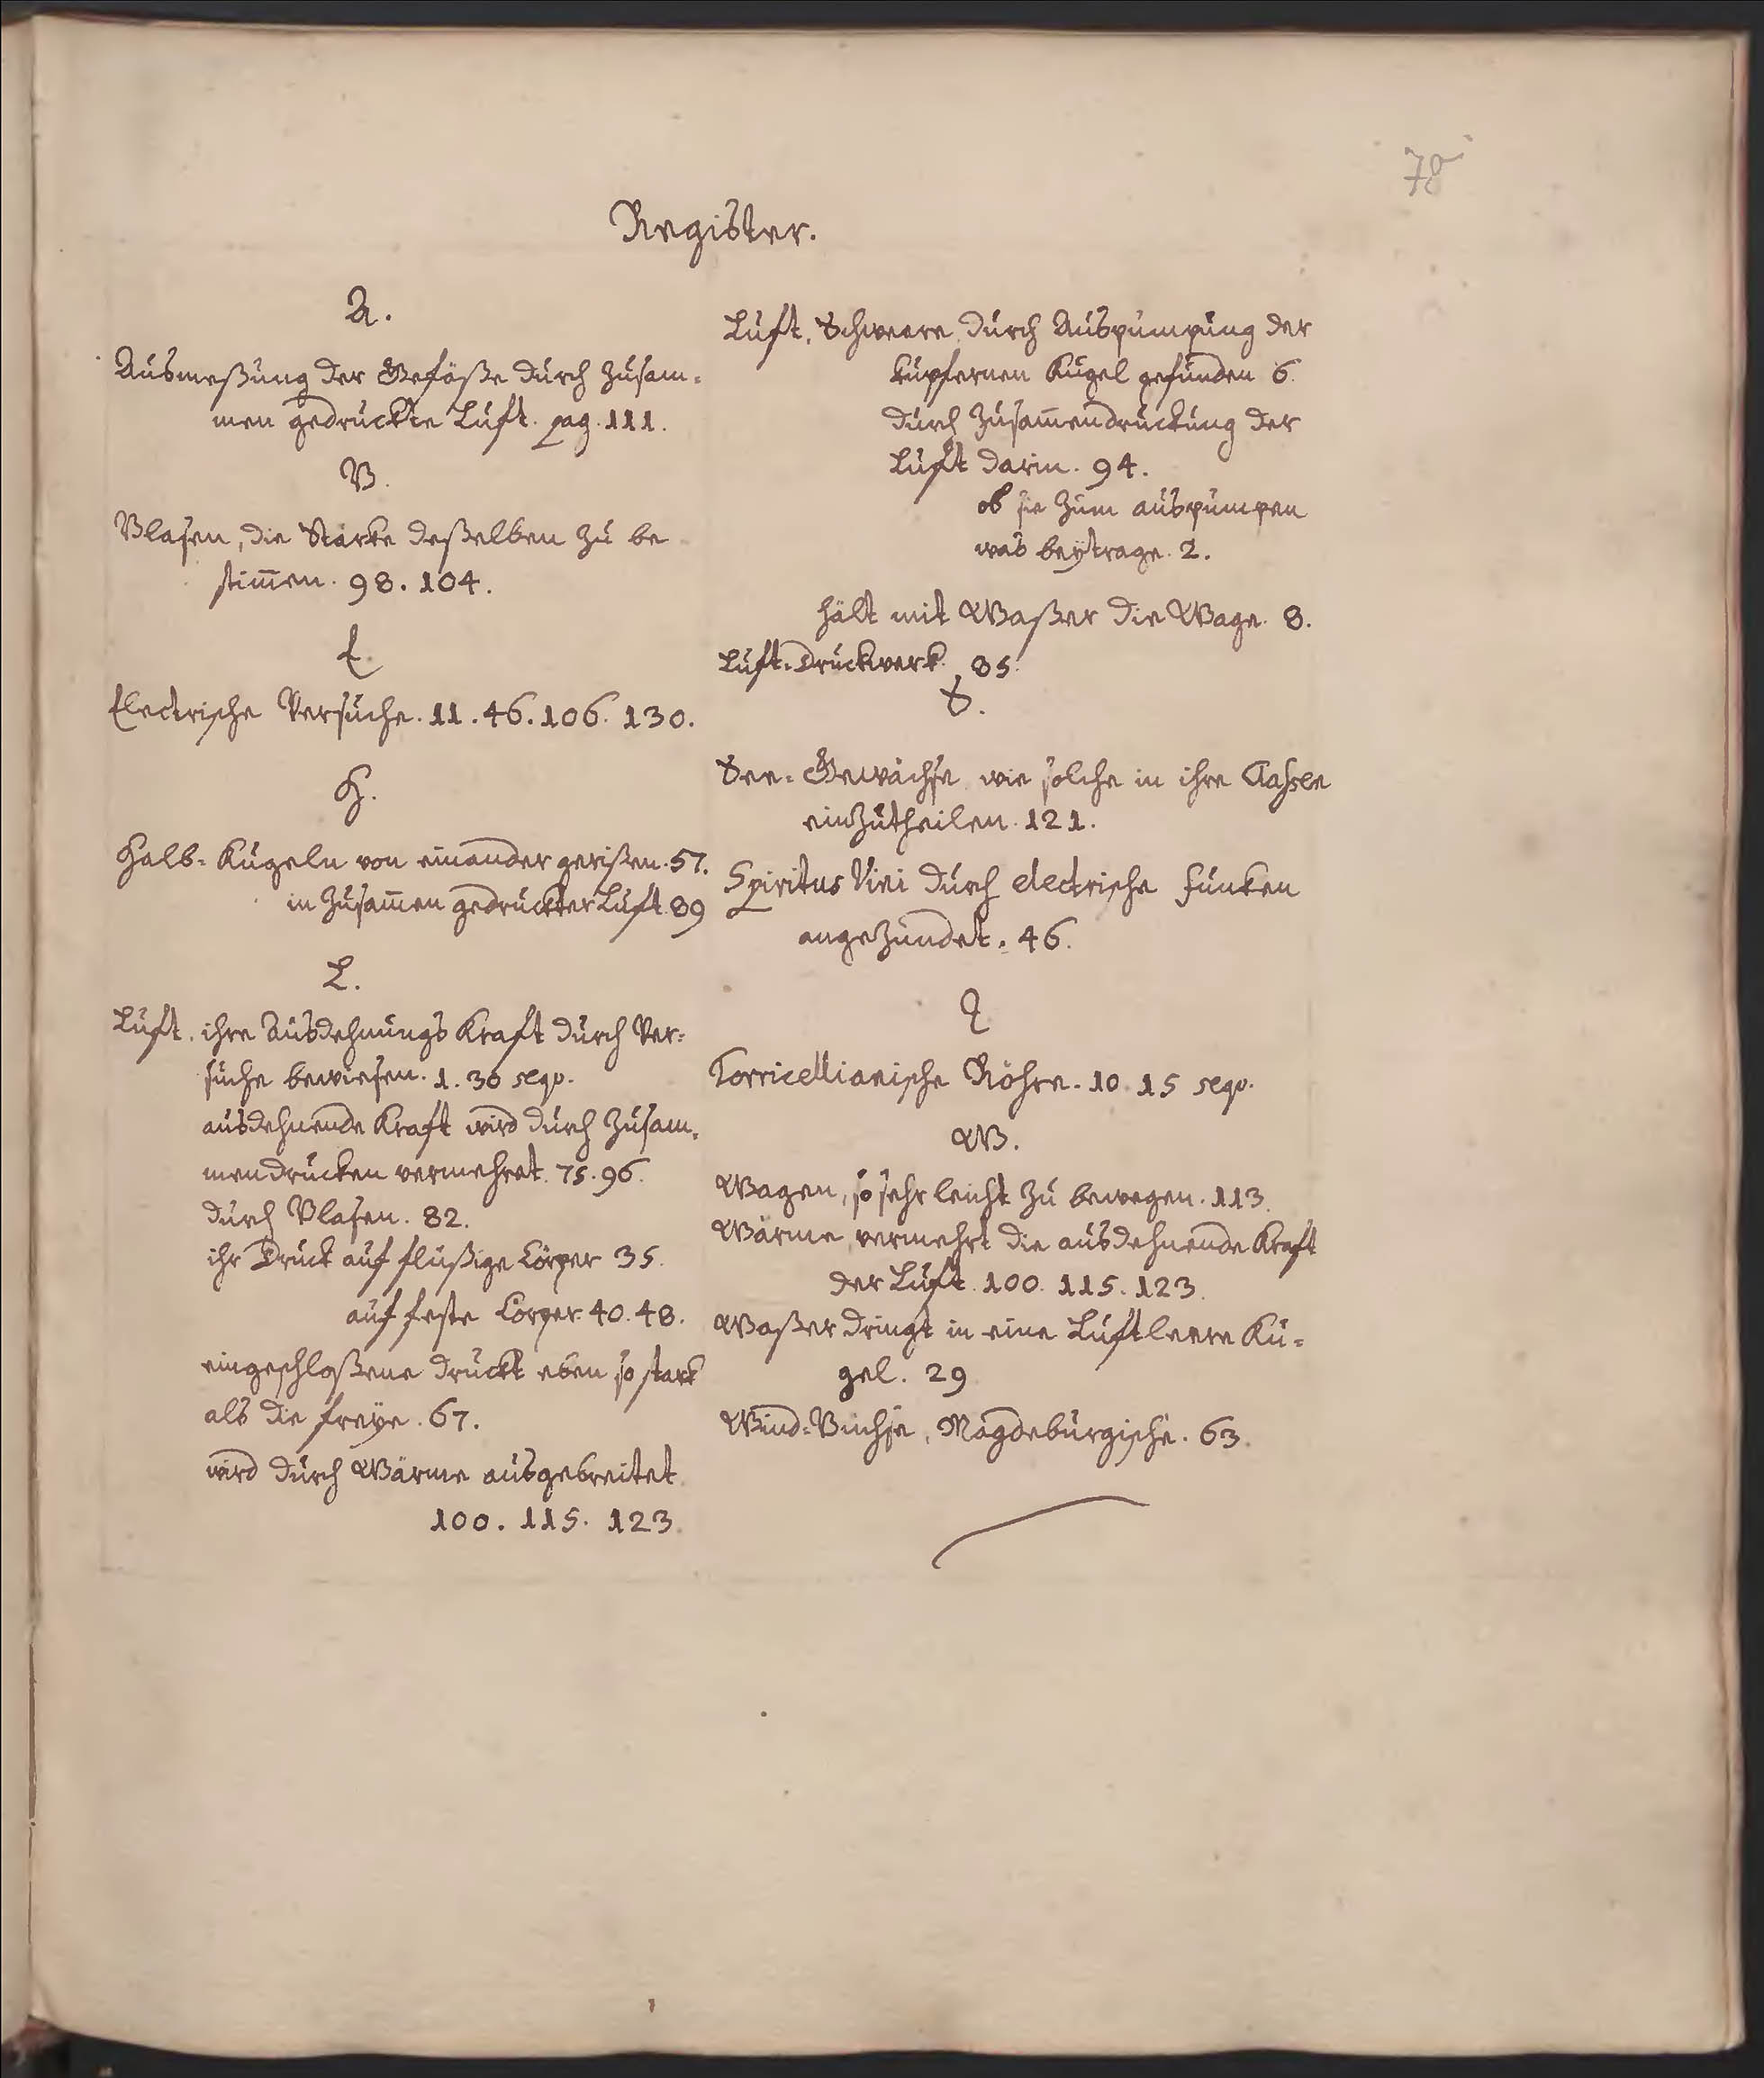 78
Register.
A.
Ausmeßung der Gefäße durch zusam-
men gedruckte Luft. pag. 111.
B.
Blasen, die Stärke deßelben zu be
stim̄en. 98. 104.
E.
Electrische Versuche. 11. 46. 106. 130.
H.
Halb-Kugeln von einander gerißen. 57.
in zusam̄en gedruckter Luft. 89
L.
Luft. ihre Ausdehnungs Kraft durch Ver-
suche bewiesen. 1. 36 seqv.
ausdehnende Kraft wird durch zusam-
mendrucken vermehret. 75. 96.
durch Blasen. 82.
ihr Druck auf flüßige Cörper 35.
auf feste Cörper. 40. 48.
eingeschloßene druckt eben so stark
als die freÿe. 67.
wird durch Wärme ausgebreitet
100. 115. 123.
Luft, Schweere durch Auspumpung der
kupfernen Kugel gefunden 6.
durch Zusam̄endruckung der
Luft darin. 94.
ob sie zum auspumpen
was beÿtrage. 2.
hält mit Waßer die Wage. 8.
Luft-Druckwerk. 85.
S.
See-Gewächse wie solche in ihre Classen
einzutheilen. 121.
Spiritus Vini durch electrische Funken
angezündet. 46.
T
Torricellianische Röhre. 10. 15 seqv.
W.
Wagen, so sehr leicht zu bewegen. 113.
Wärme vermehrt die ausdehnende Kraft
der Luft. 100. 115. 123.
Waßer dringt in eine Luftleere Ku-
gel. 29
Wind-Büchse, Magdeburgische. 63.